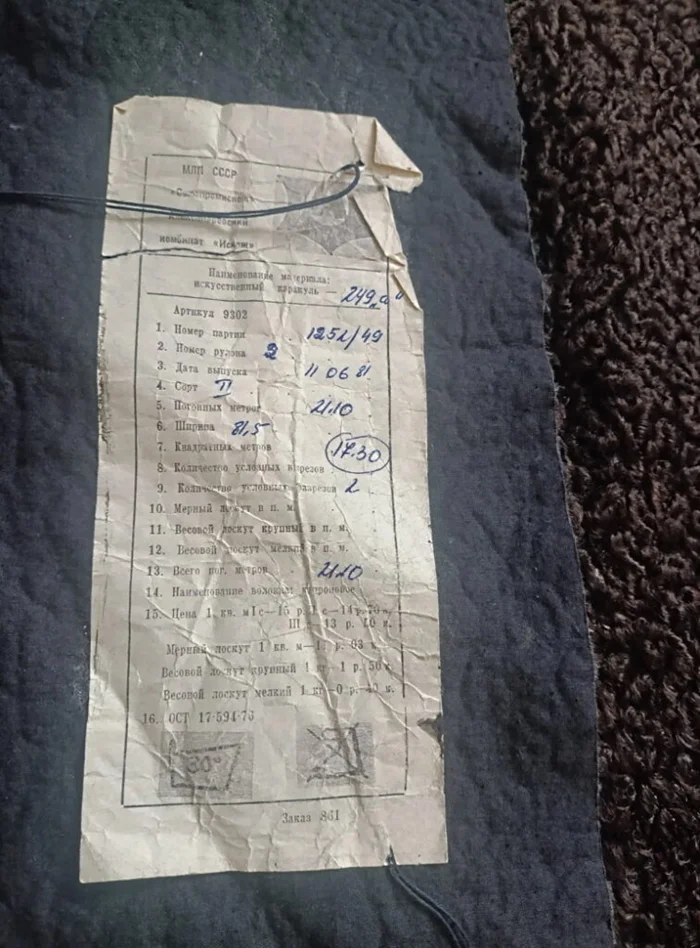 МЛП СССР
комбинат «Искож»
Наименование материала:
искусственный каракуль — 249 „а"
Артикул 9302
1. Номер партии 1251/49
2. Номер рулона 2
3. Дата выпуска 11 06 81
4. Сорт II
5. Погонных метров 21.10
6. Ширина 81,5
7. Квадратных метров 17.30
8. Количество условных вырезов
9. Количество условных разрезов 2
10. Мерный лоскут в п. м.
11. Весовой лоскут крупный в п. м.
12. Весовой лоскут мелкий в п. м.
13. Всего пог. метров 21.10
14. Наименование волокна капроновое
15. Цена 1 кв. м I с—15 р. II с—14 р.
III —13 р. 50 к.
Мерный лоскут 1 кв. м р. 63 к.
Весовой лоскут крупный 1 кг—1 р. 50 к.
Весовой лоскут мелкий 1 кг—0 р. к.
16. ОСТ 17-594-76
30°
Заказ 861